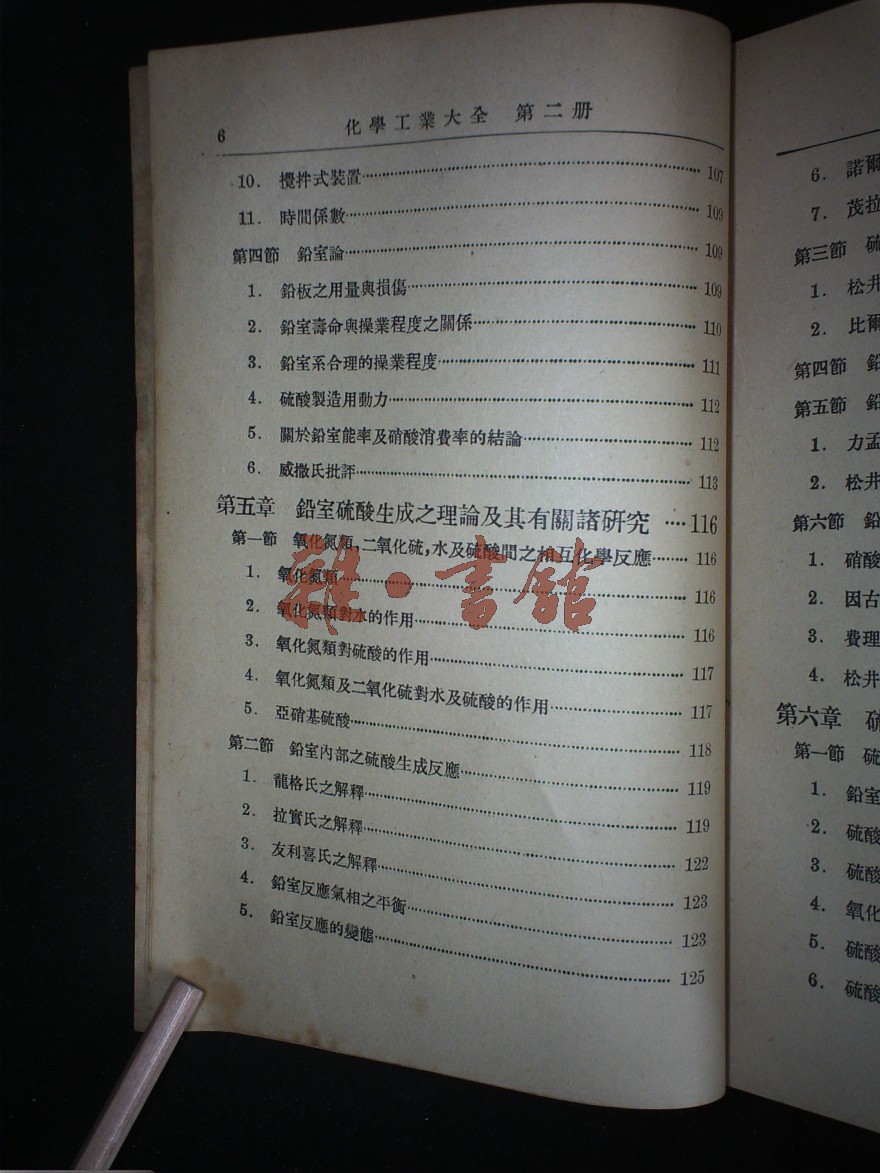 6 化學工業大全 第二册
10. 攪拌式裝置 107
11. 時間係數 109
第四節 鉛室論 109
1. 鉛板之用量與損傷 109
2. 鉛室壽命與操業程度之關係 110
3. 鉛室系合理的操業程度 111
4. 硫酸製造用動力 112
5. 關於鉛室能率及硝酸消費率的結論 112
6. 威撒氏批評 113
第五章 鉛室硫酸生成之理論及其有關諸研究 116
第一節 氧化氮類,二氧化硫,水及硫酸間之相互化學反應 116
1. 氧化氮類 116
2. 氧化氮類對水的作用 116
3. 氧化氮類對硫酸的作用 117
4. 氧化氮類及二氧化硫對水及硫酸的作用 117
5. 亞硝基硫酸 118
第二節 鉛室內部之硫酸生成反應 119
1. 龍格氏之解釋 119
2. 拉實氏之解釋 122
3. 友利喜氏之解釋 123
4. 鉛室反應氣相之平衡 123
5. 鉛室反應的變態 125
雜·書館
6. 諾爾
7. 茂拉
第三節 硫
1. 松井
2. 比爾
第四節 鉛
第五節 鉛
1. 力孟
2. 松井
第六節 鉛
1. 硝酸
2. 因古
3. 費理
4. 松井
第六章 硫
第一節 硫
1. 鉛室
2. 硫酸
3. 硫酸
4. 氧化
5. 硫酸
6. 硫酸